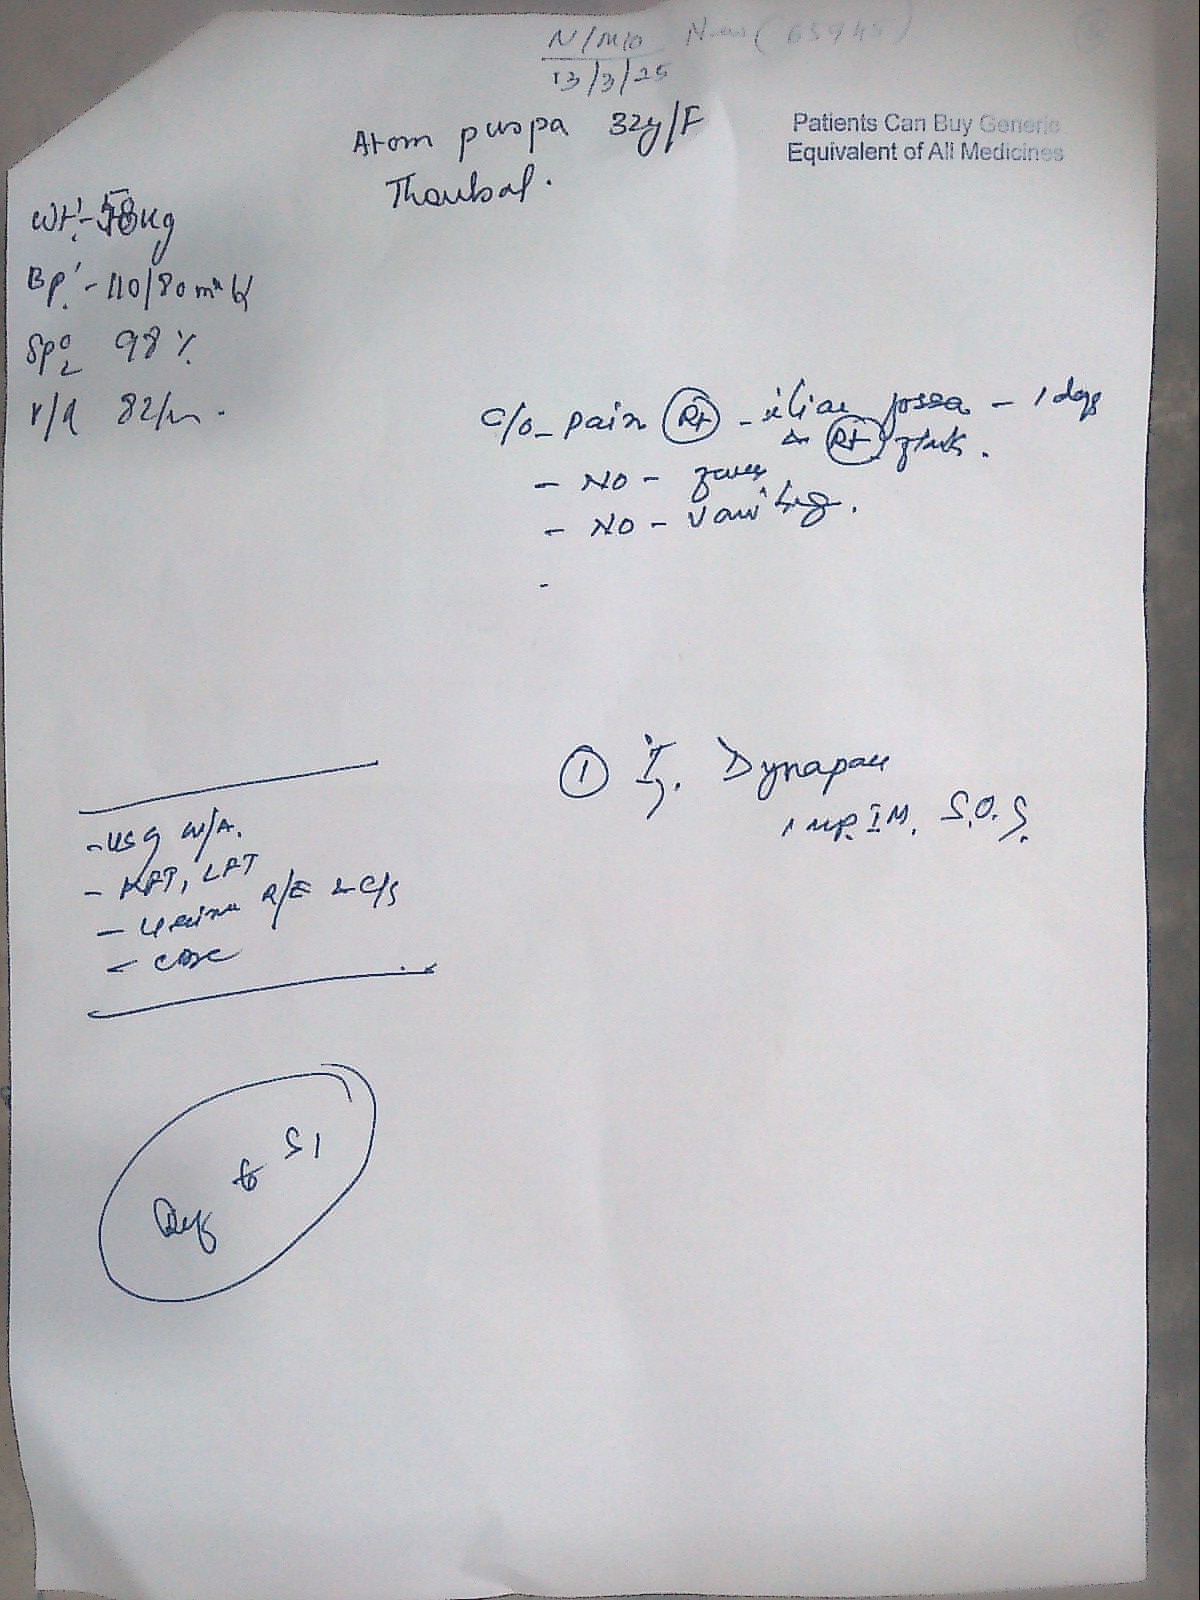 N/M10 New (65945)
13/3/25
Patients Can Buy Generic
Equivalent of All Medicines
Atom puspa 32y/F
Thoubal.
Wt:- 58kg
BP:- 110/80 mmHg
SpO2 98%
P/R 82/m.
C/o - pain Rt - iliac fossa - 1 days
Rt flank.
- NO - fever
- NO - vomiting.
-
① Inj. Dynapar
1 amp. IM. S.O.S.
- USG W/A.
- KFT, LFT
- Urine R/E & C/S
- CBC
Ref to S1